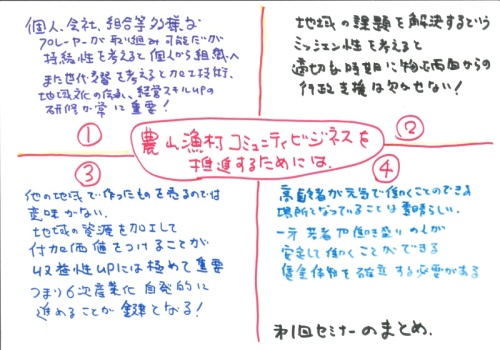 個人、会社、組合等多様な
プレーヤーが取り組み可能だが
持続性を考えると個人から組織へ
また世代交替を考えると加工技術、
地域文化の伝承、経営スキルUPの
研修が常に重要!
①
地域の課題を解決するという
ミッション性を考えると
適切な時期に物心両面からの
行政支援は欠かせない!
②
農山漁村コミュニティビジネスを
推進するためには、
③
他の地域で作ったものを売るのでは
意味がない、
地域の資源を加工して
付加価値をつけることが
収益性UPには極めて重要
つまり6次産業化自発的に
進めることが鍵となる!
④
高齢者が元気で働くことのできる
場所となっていることは素晴らしい、
一方若者や働き盛りの人が
安定して働くことができる
賃金体勢を確立する必要がある
第1回セミナーのまとめ.